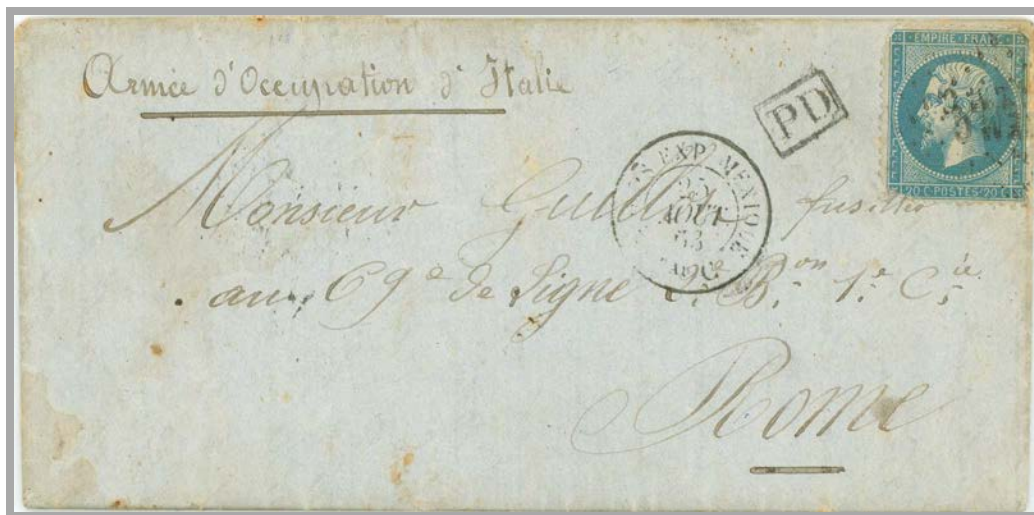 Armée d'Occupation d'Italie
EMPIRE FRANC
20 C POSTES 20 C
PD
EXP. MEXIQUE
AOUT
Monsieur fusilier
au 69e de Ligne Bon 1e Cie
Rome